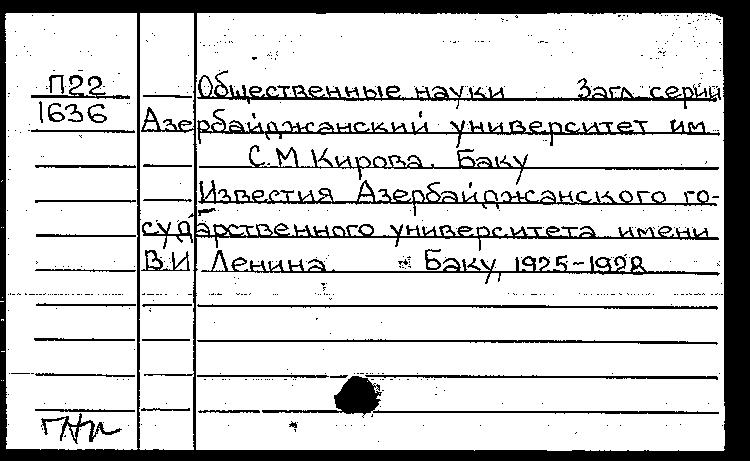 П22 Общественные науки Загл. серии
1636 Азербайджанский университет им
С.М Кирова. Баку
Известия Азербайджанского го-
сударственного университета имени
В.И Ленина. Баку, 1925-1928